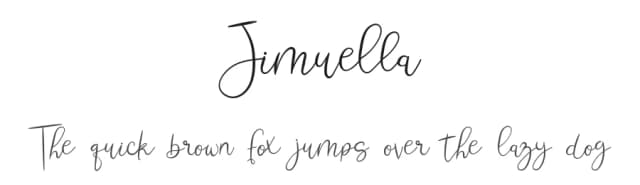 Jimuella
The quick brown fox jumps over the lazy dog